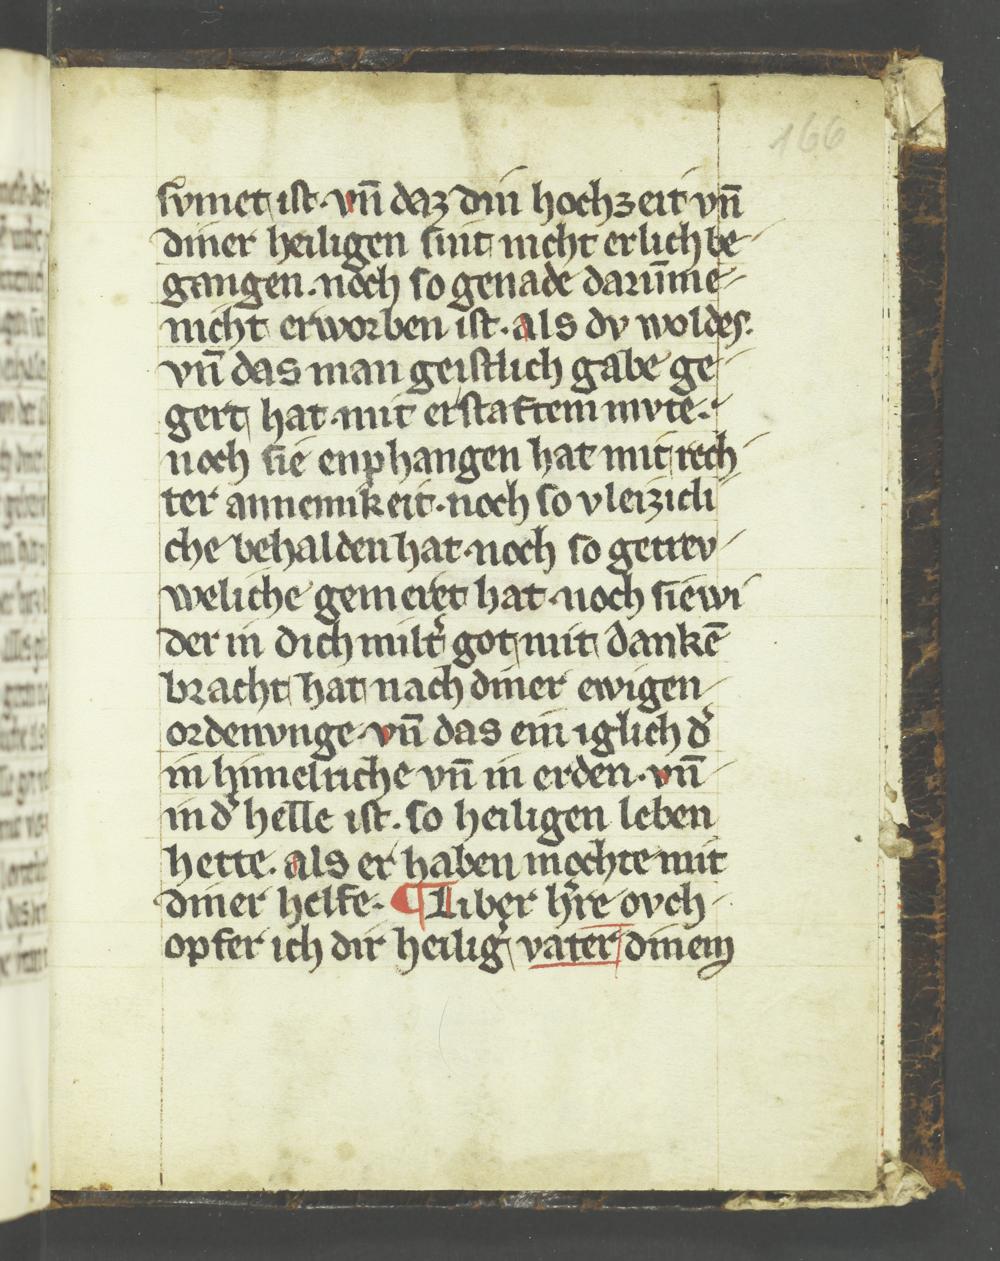 166
svmet ist. vn̄ daz din hochzeit vn̄
diner heiligen sint nicht erlich be
gangen. noch so genade darūme
nicht erworben ist. als dv woldes.
vn̄ das man geistlich gabe ge
gert hat mit erstaftem mvte.
noch sie enphangen hat mit rech
ter annemikeit. noch so vleizicli
che behalden hat. noch so getrev
weliche gemeret hat. noch sie wi
der in dich milt͛ got mit dankē
bracht hat nach diner ewigen
ordenvnge. vn̄ das ein iglich d͛
in himelriche vn̄ in erden. vn̄
in d͛ helle ist. so heiligen leben
hette. als er haben mochte mit
diner helfe. ¶ Liber h͛re ovch
opfer ich dir heilig͛ vater dinem